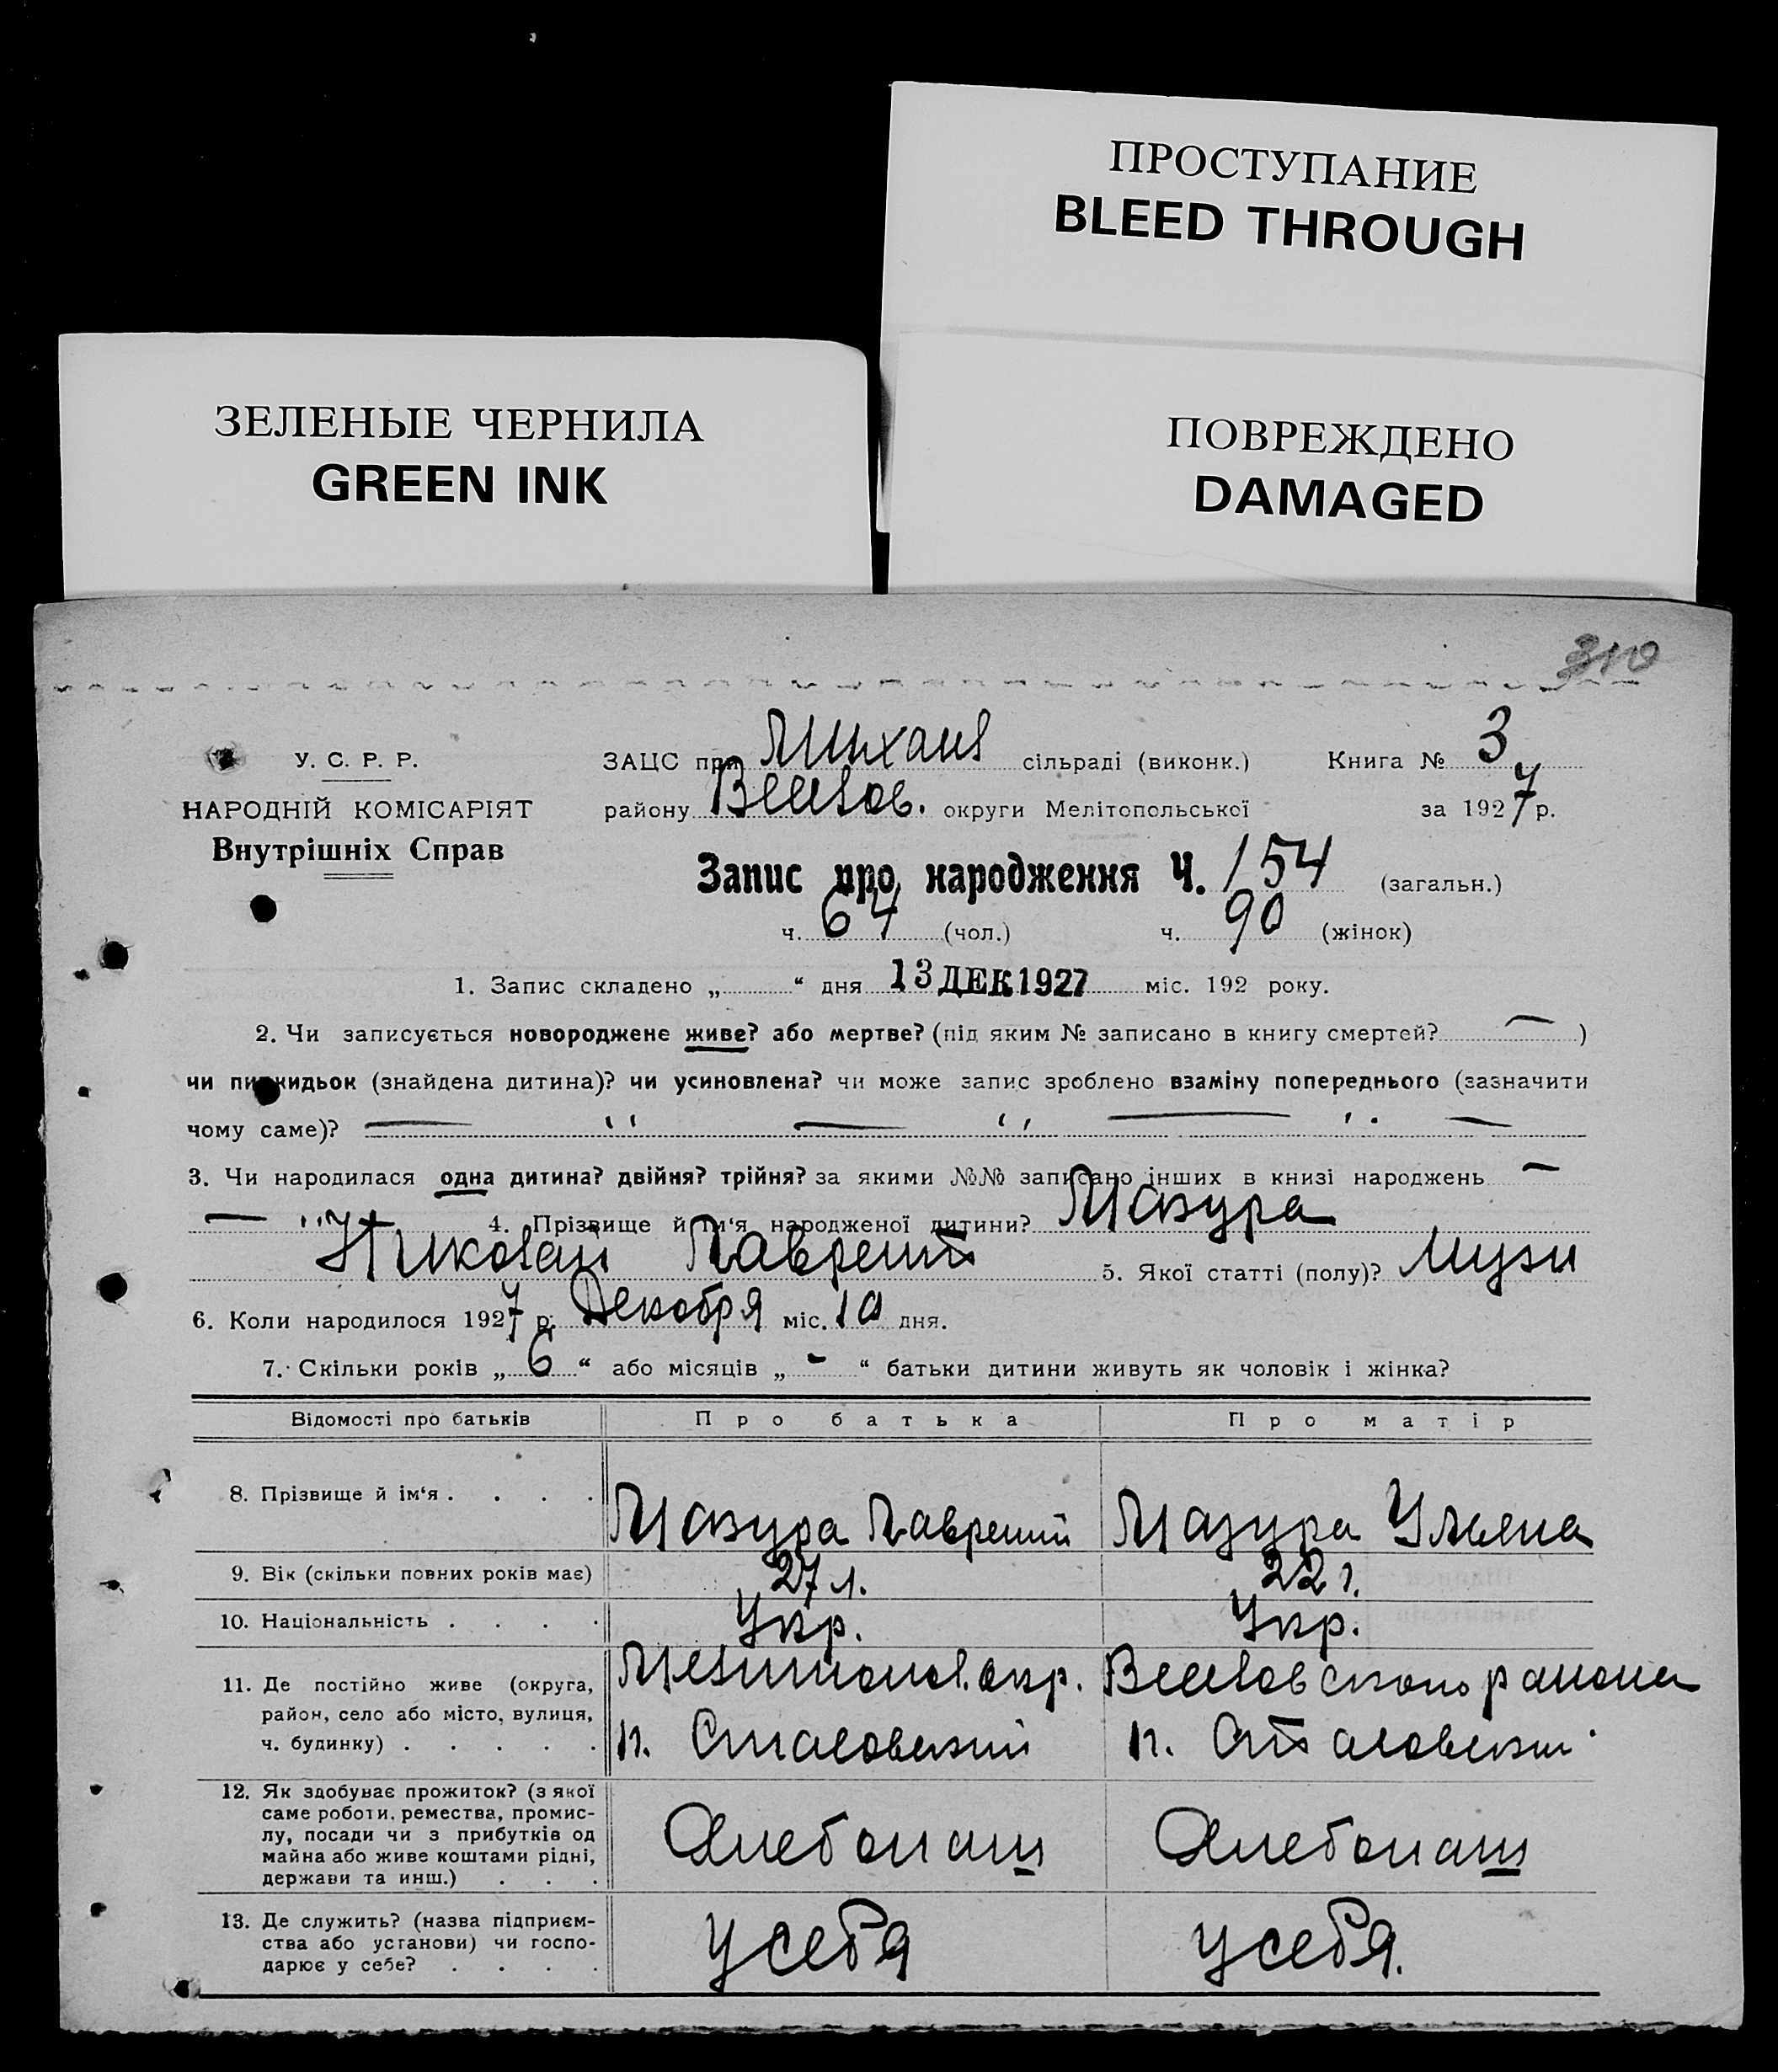 ПРОСТУПАНИЕ
BLEED THROUGH
ЗЕЛЕНЫЕ ЧЕРНИЛА
GREEN INK
ПОВРЕЖДЕНО
DAMAGED
У. С. Р. Р.
НАРОДНІЙ КОМІСАРІЯТ
Внутрішніх Справ
ЗАЦС при Михайл сільраді (виконк.) Книга № 3
району Веселов. округи Мелітопольської за 1927 р.
Запис про народження Ч. 154 (загальн.)
ч. 64 (чол.) ч. 90 (жінок)
1. Запис складено „ “ дня 13 ДЕК 1927 міс. 192 року.
2. Чи записується новороджене живе? або мертве? (під яким № записано в книгу смертей? — )
чи пидкидьок (знайдена дитина)? чи усиновлена? чи може запис зроблено взаміну попереднього (зазначити
чому саме)? — " — " — " —
3. Чи народилася одна дитина? двійня? трійня? за якими №№ записано інших в книзі народжень —
— " 4. Прізвище й ім‘я народженої дитини? Мазура
Николай Лаврент 5. Якої статті (полу)? Мужи
6. Коли народилося 1927 р. Декабря міс. 10 дня.
7. Скільки років „ 6 “ або місяців „ - “ батьки дитини живуть як чоловік і жінка?
Відомості про батьків Про батька Про матір
8. Прізвище й ім‘я . . . . Мазура Лаврентий Мазура Ульяна
9. Вік (скільки повних років має) 27 л. 22 г.
10. Національність . . . . Укр. Укр.
11. Де постійно живе (округа,
район, село або місто, вулиця,
ч. будинку) . . . . .
Мелитопол. окр. Веселовского района
п. Сталовский п. Сталовский
12. Як здобуває прожиток? (з якої
саме роботи, ремества, промис-
лу, посади чи з прибутків од
майна або живе коштами рідні,
держави та инш.) . . .
Хлебопаш Хлебопаш
13. Де служить? (назва підприєм-
ства або установи) чи госпо-
дарює у себе? . . . .
у себя у себя.